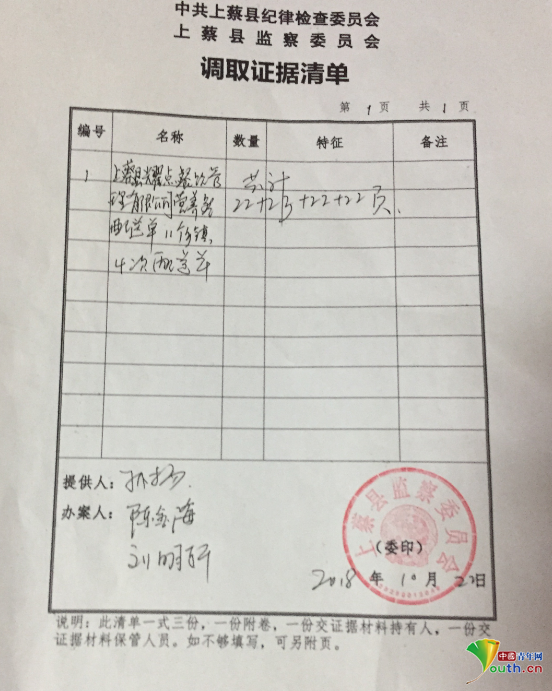 中共上蔡县纪律检查委员会
上蔡县监察委员会
调取证据清单
第 1 页 共 1 页
编号 名称 数量 特征 备注
1 上蔡县耀点餐饮管 共计
理有限公司营养餐 22+23+22+22页.
配送单11个镇,
4次配送单
提供人:孙扬
办案人:陈金海
刘明轩
上蔡县监察委员会
(委印)
2018 年 10 月 22日
说明:此清单一式三份,一份附卷,一份交证据材料持有人,一份交
证据材料保管人员。如不够填写,可另附页。
中国青年网
youth.cn